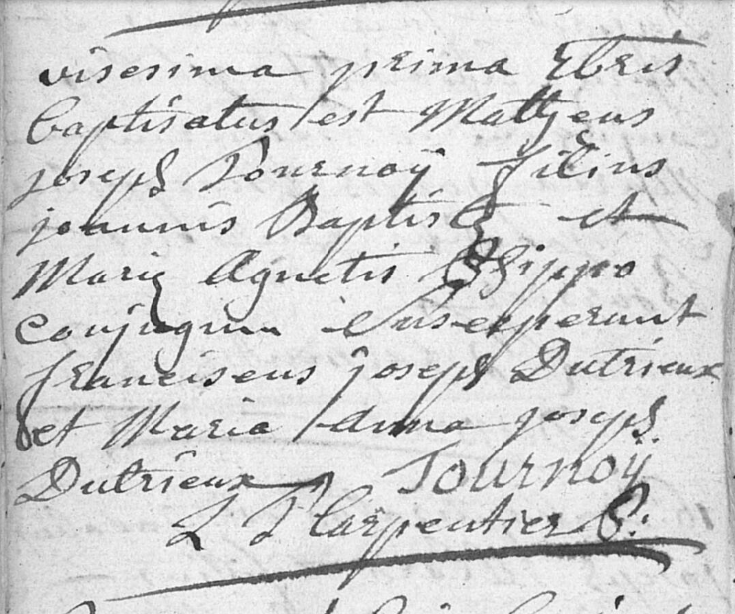 visesima prima Xbris
baptisatus est Mattheus
joseph Tournoÿ filius
joannis Baptistæ et
Mariæ Agnetis Phlippo
conjugum Susceperunt
franciscus joseph Dutrieux
et Maria Anna joseph
Dutrieux, Tournoÿ
L J Carpentier P: